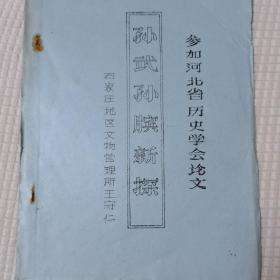 参加河北省历史学会论文
孙武孙膑新探
石家庄地区文物管理所王守仁